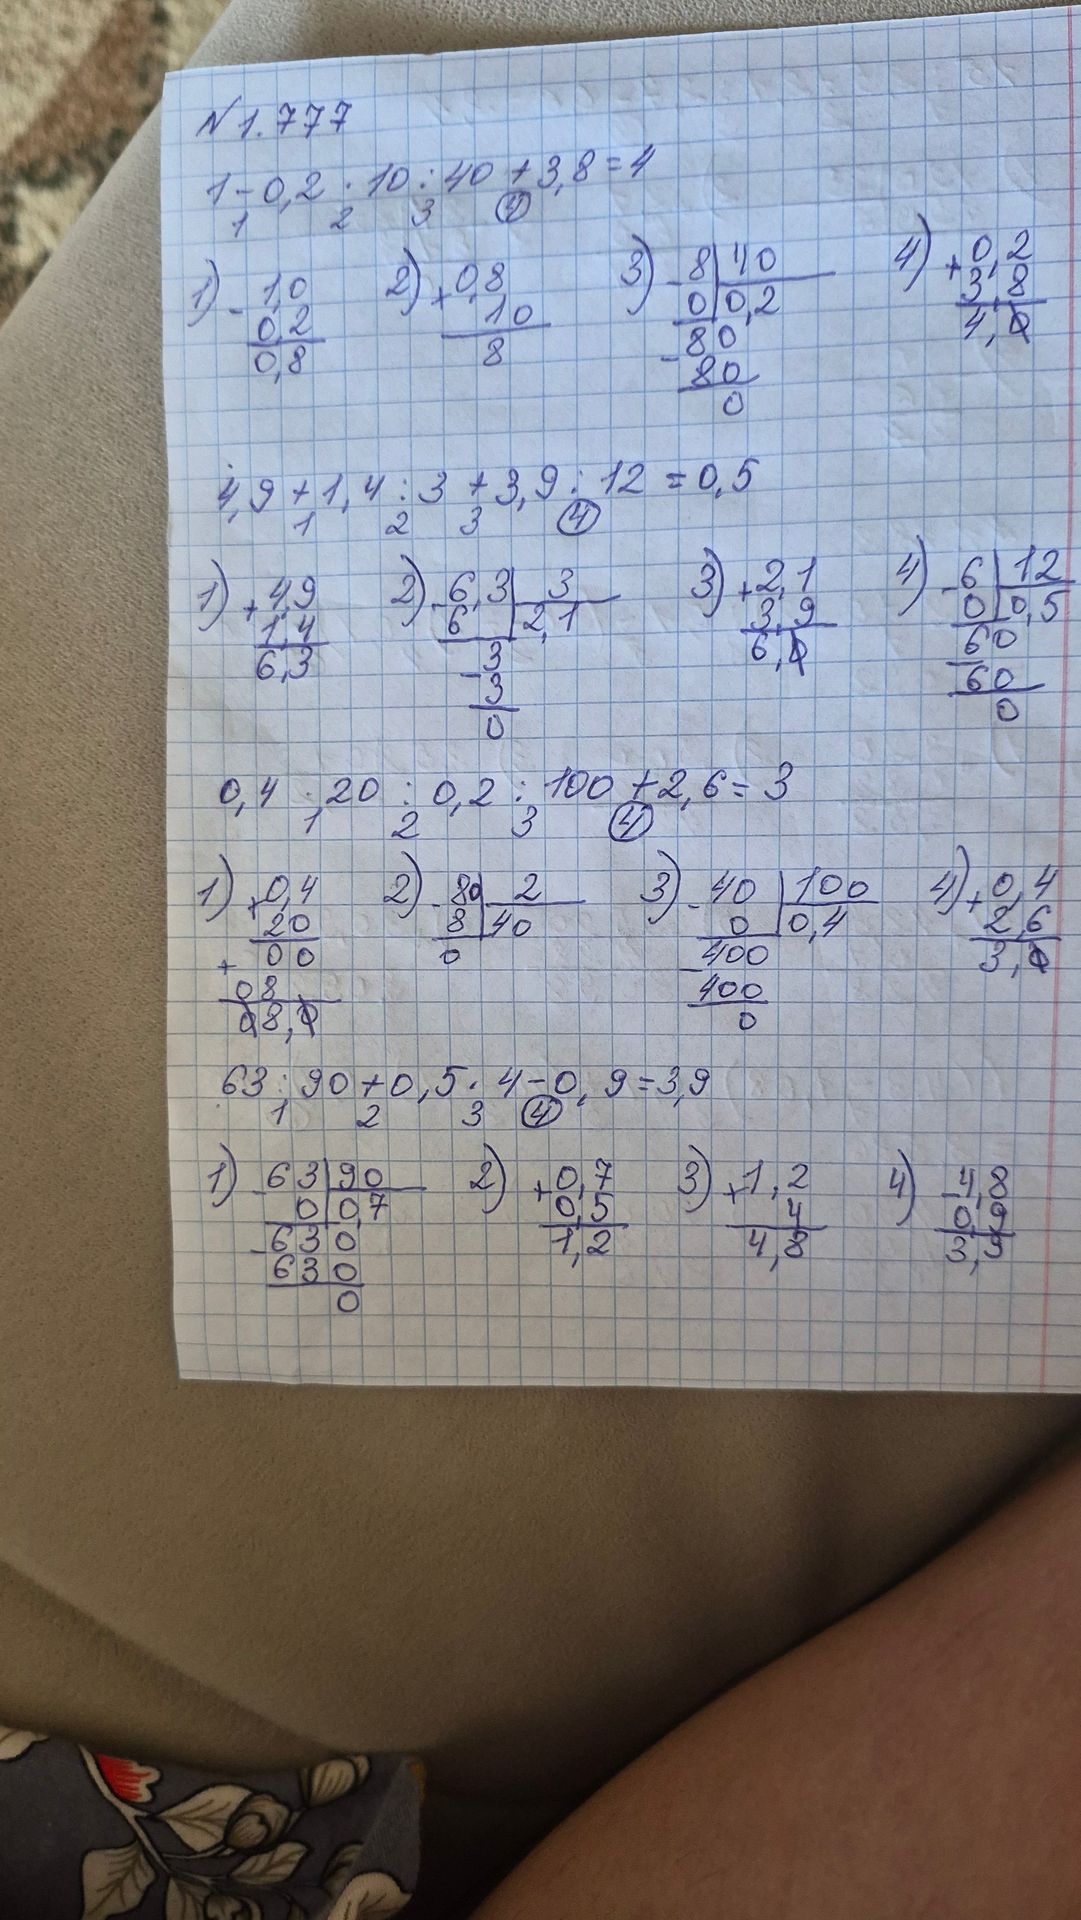 N 1.777
1 - 0,2 · 10 : 40 + 3,8 = 4
1 2 3 4
1) - 1,0 2) + 0,8 3) - 8 | 40 4) + 0,2
0,2 10 0 | 0,2 3,8
0,8 8 - 80 4,0
80
0
4,9 + 1,4 : 3 + 3,9 : 12 = 0,5
1 2 3 4
1) + 4,9 2) - 6,3 | 3 3) + 2,1 4) - 6 | 12
1,4 6 | 2,1 3,9 0 | 0,5
6,3 - 3 6,0 - 60
3 60
0 0
0,4 · 20 : 0,2 : 100 + 2,6 = 3
1 2 3 4
1) × 0,4 2) - 80 | 2 3) - 40 | 100 4) + 0,4
20 8 | 40 0 | 0,4 2,6
+ 00 0 - 400 3,0
08 400
08,0 0
63 : 90 + 0,5 · 4 - 0,9 = 3,9
1 2 3 4
1) - 63 | 90 2) + 0,7 3) × 1,2 4) - 4,8
0 | 0,7 0,5 4 0,9
- 630 1,2 4,8 3,9
630
0